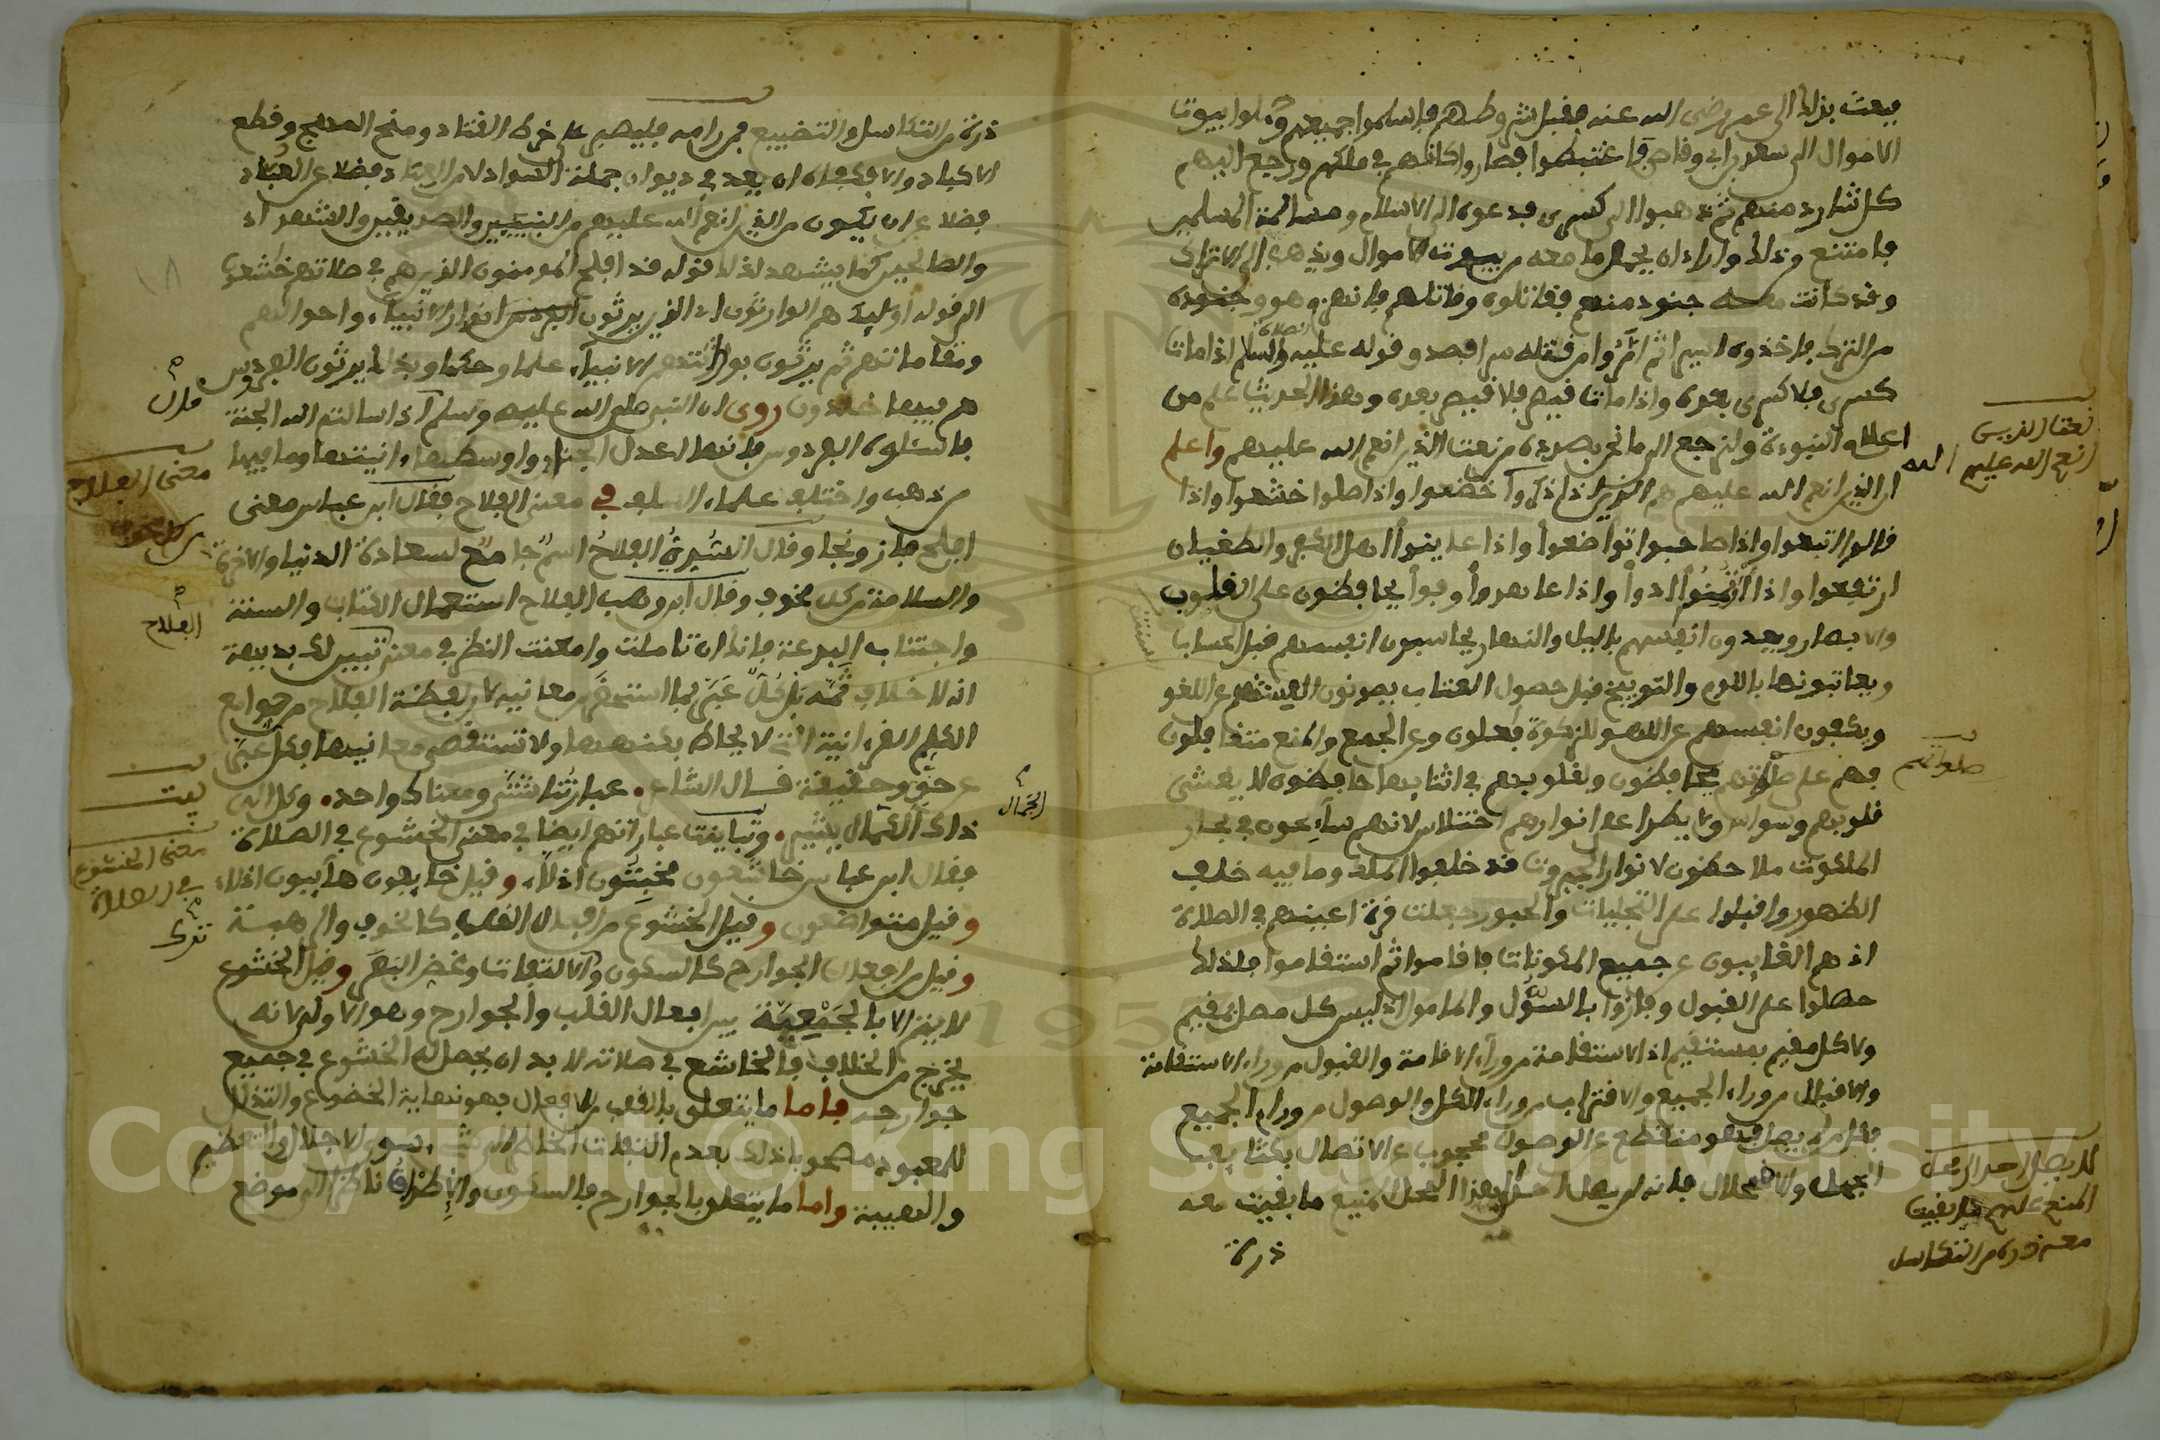 فبعث بذلك الى عمر رضي الله عنه فقبل شروطهم فاسلموا جميعهم وحملوا بيوت
الاموال الى سعد بن ابي وقاص فاغتبطوا فصاروا كانهم في ملكهم ورجع اليهم
كل شارد منهم ثم ذهبوا الى كسرى فدعوه الى الاسلام ومسالمة المسلمين
فامتنع من ذلك واراد ان يحمل ما معه من بيوت الاموال ويذهب الى الاتراك
وقد كانت معه جنود منهم فقاتلوه وقاتلهم فانهزم هو وجنوده
من الترك فاخذوه اسيرا ثم امروا من قتله سرا فصدق قوله عليه الصلاة والسلام اذا مات
كسرى فلا كسرى بعده واذا مات قيصر فلا قيصر بعده وهذا الحديث علم من
اعلام النبوءة ولنرجع الى ما نحن بصدده من نعت الذين انعم الله عليهم واعلم
ان الذين انعم الله عليهم هم الذين اذا ذكروا خضعوا واذا صلوا خشعوا واذا
قالوا اتبعوا واذا صاحبوا تواضعوا واذا عاينوا اهل الكبر والطغيان
ارتفعوا واذا ائتمنوا ادوا واذا عاهدوا وفوا يحافظون على القلوب
والابصار ويعدون انفسهم بالليل والنهار يحاسبون انفسهم قبل الحساب
ويعاتبونها باللوم والتوبيخ قبل حصول العتاب يصونون السنتهم عن اللغو
ويكفون انفسهم عن اللهو للزكوة فاعلون وعن الجمع والمنع متغافلون
فهم على صلاتهم يحافظون ولقلوبهم في اثنايها حافظون لا يغشى
قلوبهم وسواس ولا يطرا على انوارهم اختلاس لانهم سايحون في بحار
الملكوت ملاحظون لانوار الجبروت قد خلفوا الملك وما فيه خلف
الظهور واقبلوا على التجليات والحبور جعلت قرة اعينهم في الصلاة
اذ هم الغايبون عن جميع المكونات فاقاموا ثم استقاموا فلذلك
حصلوا على القبول وفازوا بالسؤل والمامول اذ ليس كل مصل بمقيم
ولا كل مقيم بمستقيم اذ الاستقامة من وراء الاقامة والقبول من وراء الاستقامة
والاقبال من وراء الجميع والاقتراب من وراء الكل والوصول من وراء الجميع
فكل من لم يصل فهو منقطع عن الوصول محجوب عن الاتصال بكثايف
الجهل والاضمحلال فانه لن يصل احد الى هذا المحل المنيع ما بقيت معه
ذرة
نعت الذين
انعم الله عليهم
صلواتهم
لن يصل احد الى محل
المنعم عليهم ما بقيت
معه ذرة من التكاسل
ذرة من التكاسل والتضييع فمن رامه فليصبر على خرط القتاد ومنح المهج وقطع
الاكباد والا فكفاه ان يعد في ديوان جملة السواد لا من العباد فضلا عن العباد
فضلا عن ان يكون من الذين انعم الله عليهم من النبيين والصديقين والشهداء
والصالحين كما يشهد لذلك قوله قد افلح المومنون الذين هم في صلاتهم خاشعون
الى قوله اوليك هم الوارثون اي الذين يرثون انوار الانبياء واحوالهم
ومقاماتهم ثم يرثون بوراثتهم الانبياء علما وحكما وبذلك يرثون الفردوس
هم فيها خالدون روى ان النبي صلى الله عليه وسلم قال اذا سالتم الله الجنة
فاسئلوه الفردوس فانها اعدل الجنان واوسطها وانيتها وما فيها
من ذهب واختلف علماء السلف في معنى الفلاح فقال ابن عباس معنى
افلح فاز ونجا وقال القشيري الفلاح اسم جامع لسعادة الدنيا والاخرة
والسلامة من كل مخوف وقال ابن وهب الفلاح استعمال الكتاب والسنة
واجتناب البدعة فانك ان تاملت وامعنت النظر في معنى تبين لك بديهة
انه لا خلاف ثمه بل كل عبر بما استحضر من معانيه لان لفظة الفلاح من جوامع
الكلم القرءانية التي لا يحاط بكنهها ولا تستقصى معانيها فكل عبر
عن حق وحقيقة قال الشاعر عباراتنا شتى ومعناك واحد وكل الى
ذاك الجمال يشير وتباينت عباراتهم ايضا في معنى الخشوع في الصلاة
فقال ابن عباس خاشعون مخبتون اذلاء وقيل خايفون هايبون اذلاء
وقيل متواضعون وقيل الخشوع من افعال القلب كالخوف والرهبة
وقيل من افعال الجوارح كالسكون وترك الالتفات وغض البصر وقيل الخشوع
لا يتم الا بالجمعية بين افعال القلب والجوارح وهو الاولى لانه
يخرج من الخلاف فالخاشع في صلاته لا بد ان يحصل له الخشوع في جميع
جوارحه فاما ما يتعلق بالقلب من الافعال فهو نهاية الخضوع والتذلل
للمعبود مصحوبا ذلك بعدم التفات الخاطر الى شيء سوى الاجلال والتعظيم
والهيبة واما ما يتعلق بالجوارح فالسكون والاطراق ناظرا الى موضع
قال
معنى الفلاح
الفلاح
بيت
الجمال
معنى الخشوع
في الصلاة
ترك
Copyright © King Saud University
1957